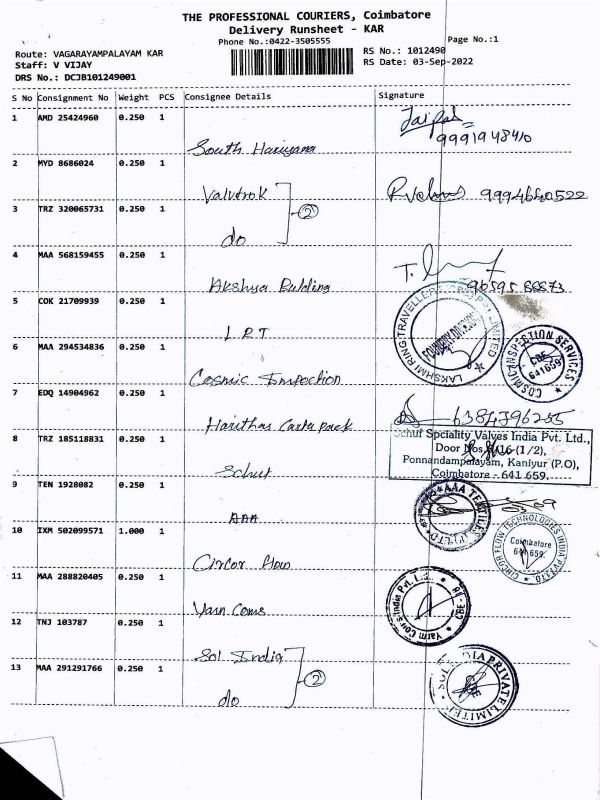 THE PROFESSIONAL COURIERS, Coimbatore
Delivery Runsheet - KAR
Phone No.:0422-3505555
Page No.:1
Route: VAGARAYAMPALAYAM KAR
RS No.: 1012490
Staff: V VIJAY
RS Date: 03-Sep-2022
DRS No.: DCJB101249001
S No Consignment No Weight PCS Consignee Details Signature
1 AMD 25424960 0.250 1
South Hariyana
9991948410
2 MYD 8686024 0.250 1
Valvtrok
9994640522
3 TRZ 320065731 0.250 1
do
2
4 MAA 568159455 0.250 1
Akshya Building
5 COK 21709939 0.250 1
LRT
LAKSHMI RING TRAVELLERS LIMITED
6 MAA 294534836 0.250 1
Cosmic Inspection
COSMIC INSPECTION SERVICES
CBE
641659
7 EDQ 14904962 0.250 1
Harithas Carta pack
6384396255
8 TRZ 185118831 0.250 1
Schut
Schuf Spciality Valves India Pvt. Ltd.,
Door Nos. (1/2),
Ponnandampalayam, Kaniyur (P.O),
Coimbatore - 641 659.
9 TEN 1928082 0.250 1
AAA
AAA TEXTILES (P) LTD
10 IXM 502099571 1.000 1
Circor flow
CIRCOR FLOW TECHNOLOGIES INDIA PVT LTD
Coimbatore
641 659.
11 MAA 288820405 0.250 1
Yarn Coms
Yarn Coms India Pvt. Ltd.
12 TNJ 103787 0.250 1
Sol India
13 MAA 291291766 0.250 1
do
2
INDIA PRIVATE LIMITED